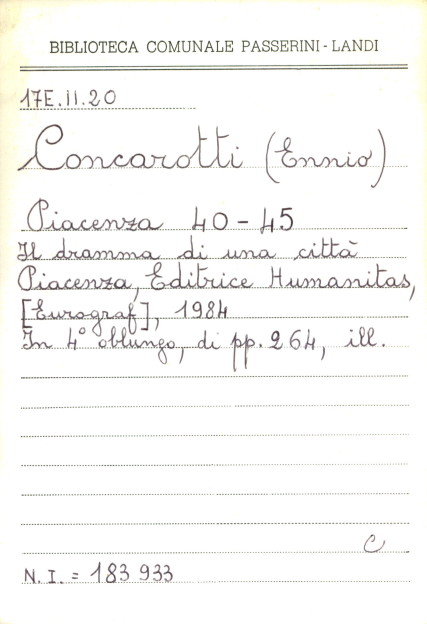 BIBLIOTECA COMUNALE PASSERINI-LANDI
17E.II.20
Concarotti (Ennio)
Piacenza 40-45
Il dramma di una città
Piacenza, Editrice Humanitas,
[Eurograf], 1984
In 4° oblungo, di pp. 264, ill.
C
N. I. = 183 933